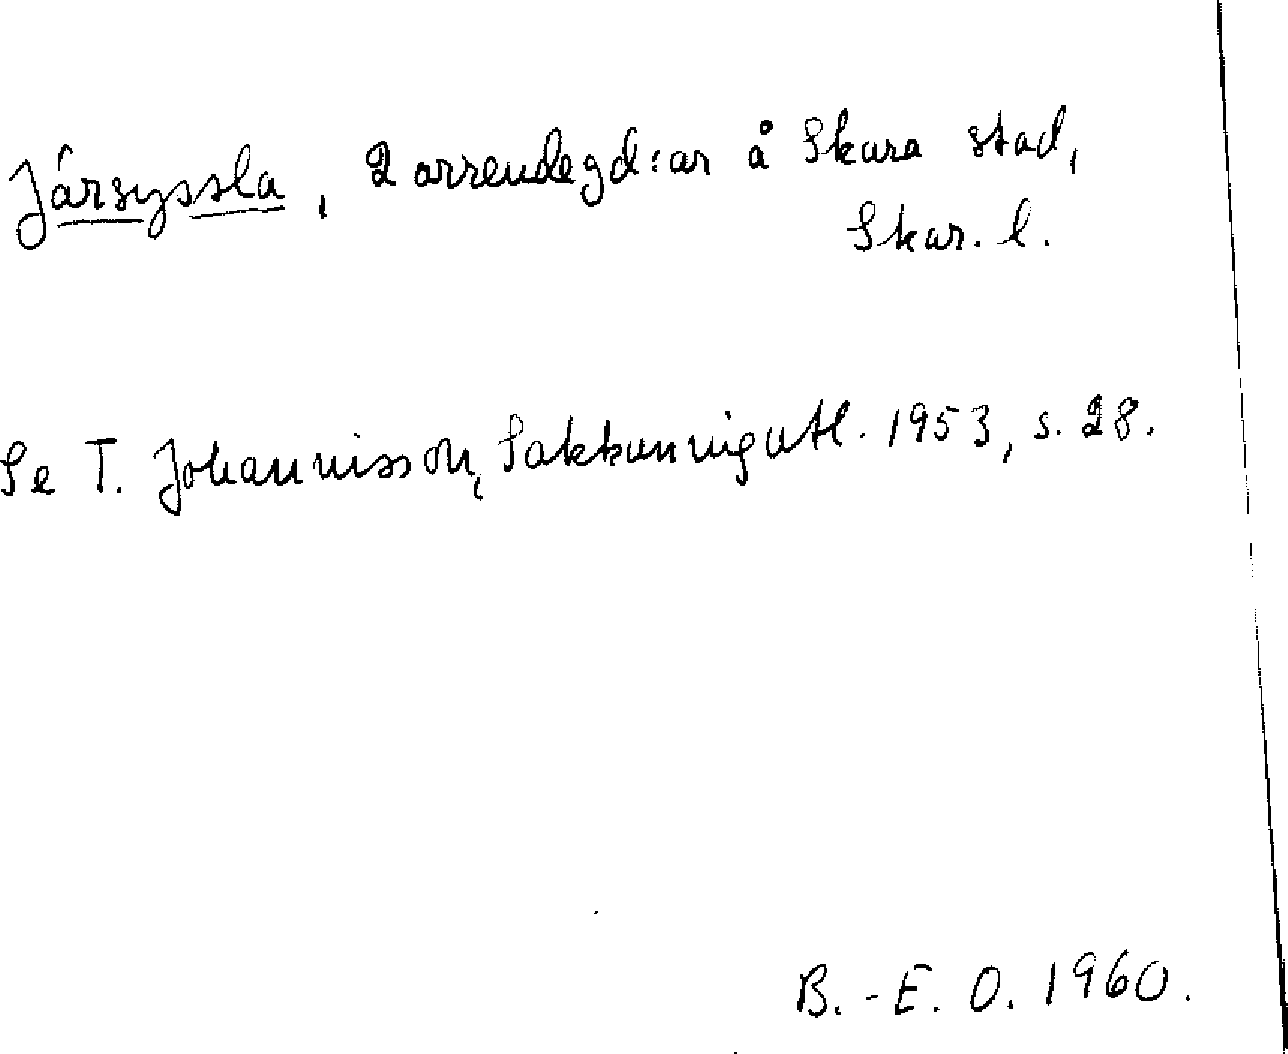 Jársyssla, 2 arrendegd:ar å Skara stad,
Skar. l.
Se T. Johannisson, Sakkunnigutl. 1953, s. 28.
B.-E. O. 1960.